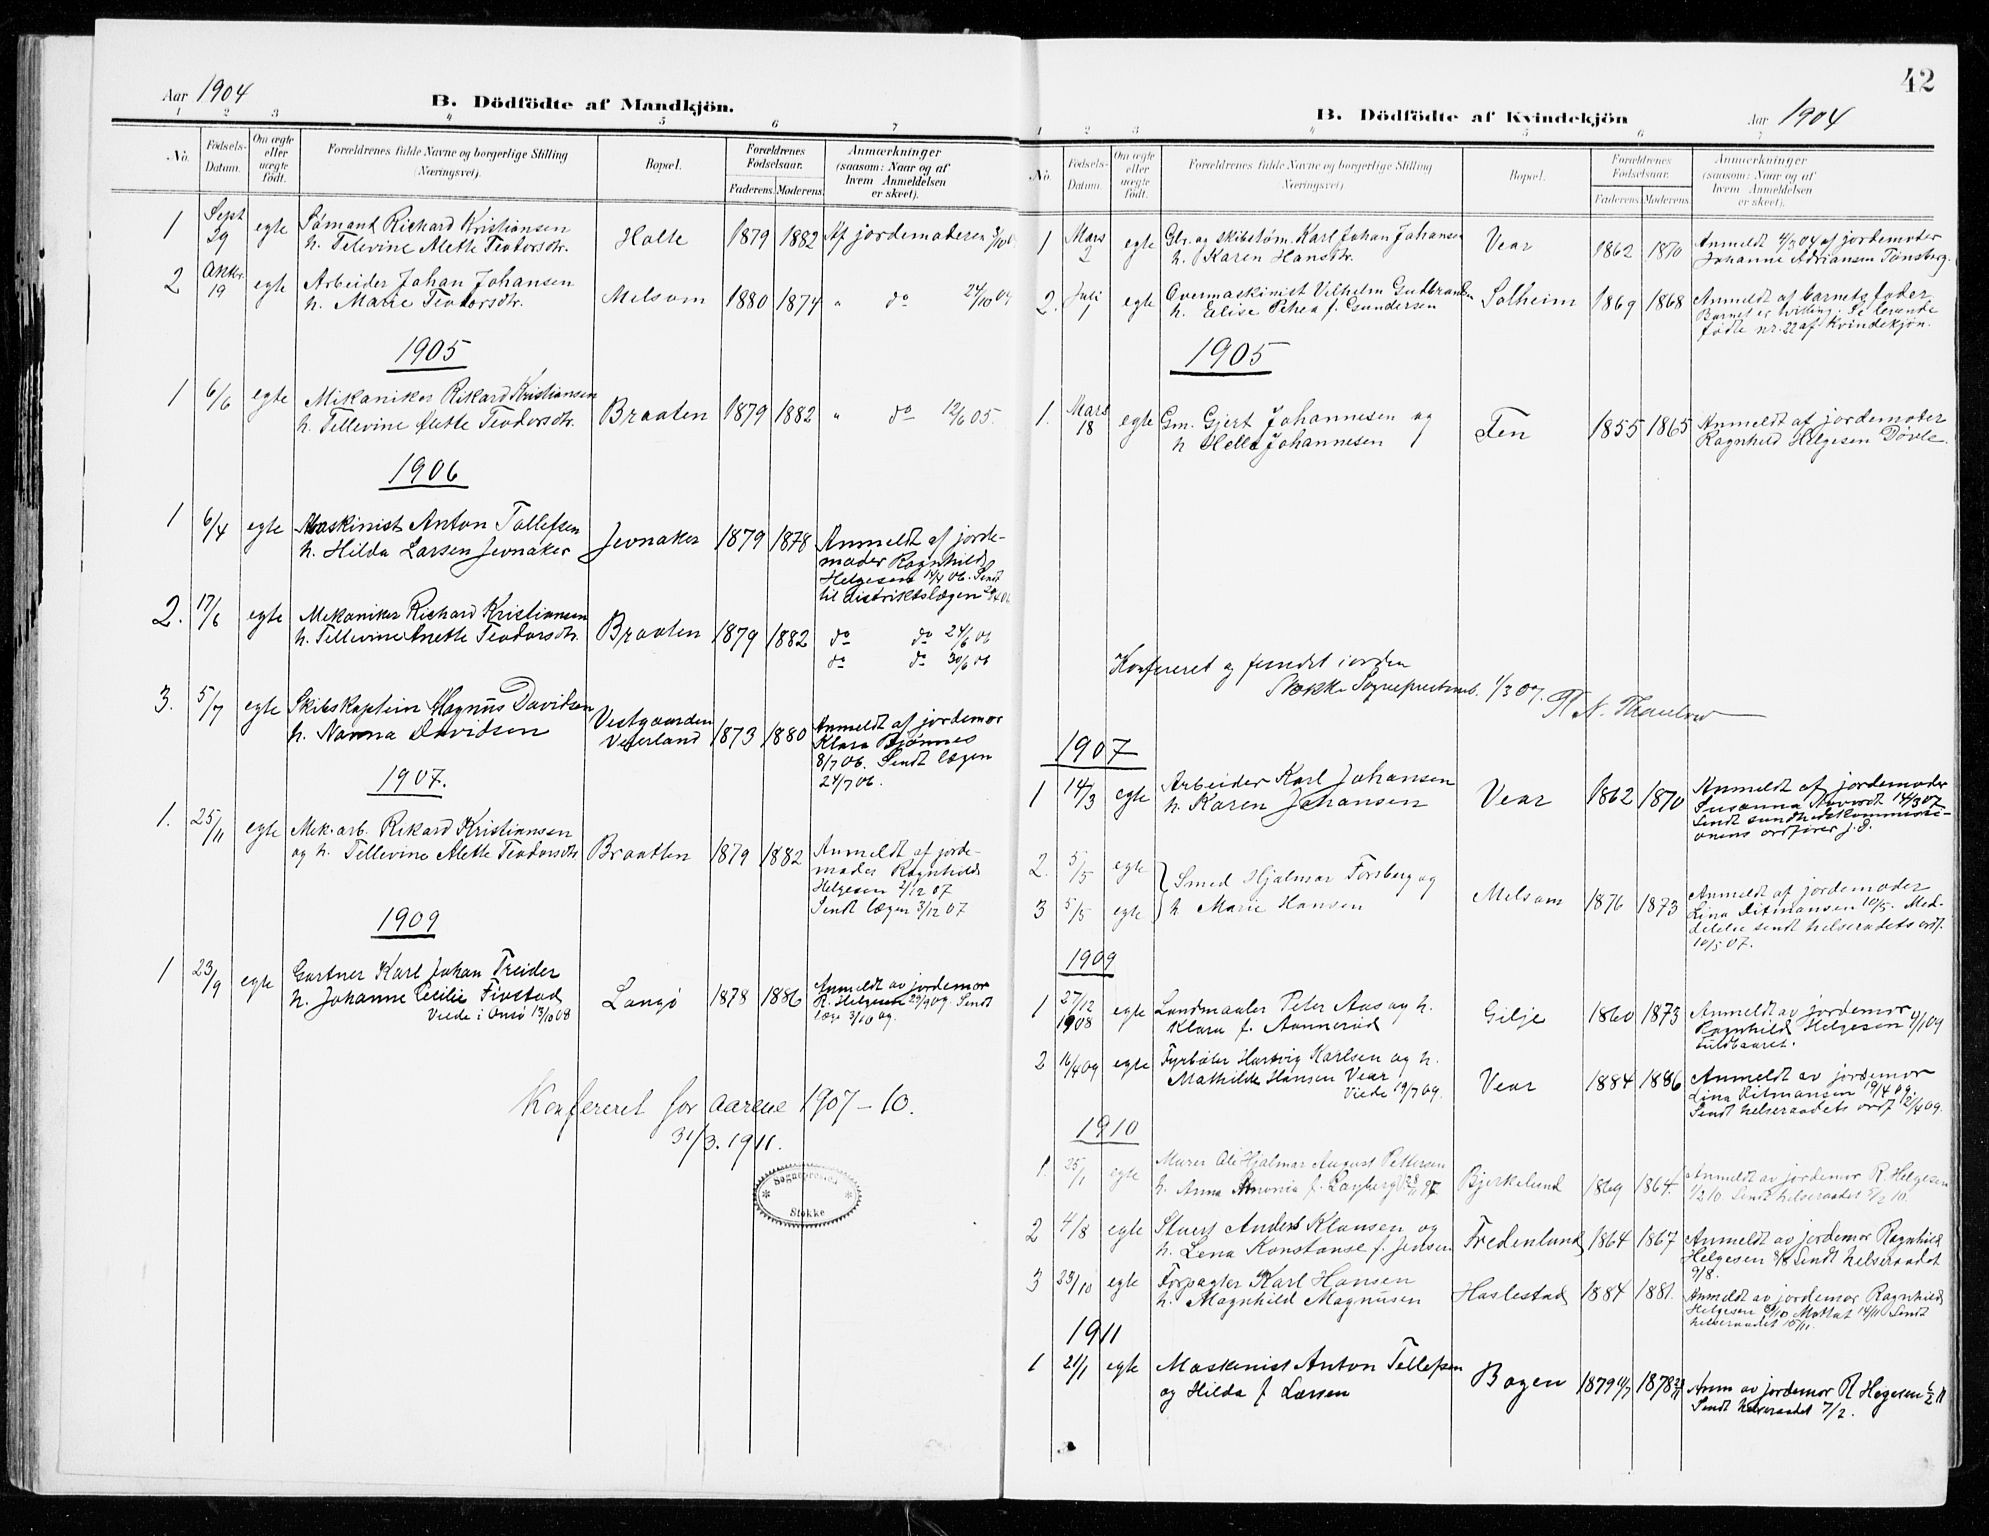 Aar 1904
B. Dödfödte af Mandkjön.
1 2 3 4 5 6 7
No.
Fødsels-Datum.
Om ægte eller uægte født.
Forældrenes fulde Navne og borgerlige Stilling (Næringsvei).
Bopæl.
Forældrenes Fødselsaar.
Faderens. Moderens.
Anmærkninger (saasom: Naar og af hvem Anmeldelsen er skeet).
1 Sept 29 egte Sømand Richard Kristiansen
h. Tilevine Alette Teodorsdtr. Holte 1879 1882 Af jordemoderen
2 19 egte Arbeider Johan Johansen
h. Marie Teodorsdtr. Melsom 1880 1874 " do 24/10 04
1905
1 6/6 egte Mikaniker Rikard Kristiansen
h. Tellevine Alette Teodorsdtr. Braaten 1879 1882 " do 12/6 05.
1906
1 6/4 egte Maskinist Anton Tollefsen
h. Hilda Larsen Jevnaker Jevnaker 1879 1878 Anmeldt af jorde-
moder Ragnhild
Helgesen 14/4 06. Sendt
til distriktslægen
2. 17/6 egte Mekaniker Richard Kristiansen
h. Tellevine Anette Teodorsdtr. Braaten 1879 1882 do do 24/6 06
do do 30/6 06
3. 5/7 egte Skibskaptein Magnus Davidsen
h. Nanna Davidsen Vestgaarden
Veierland 1873 1880 Anmeldt af jordemor
Klara Bjønnes
8/7 06. Sendt lægen
24/7 06.
1907.
1. 25/11 egte Mek. arb. Rikard Kristiansen
og h. Tellevine Alette Teodorsdtr. Braatten 1879 1882 Anmeldt af jorde-
moder Ragnhild
Helgesen 2/12 07
Sendt lægen 3/12 07
1909
1 23/9 egte Gartner Karl Johan Treider
h. Johanne Cecilie Fivstad
Viede i Onsø 13/10 08 Langø 1878 1886 Anmeldt av jordemor
R. Helgesen 29/9 09. Sendt
3/10 09.
Konfereret for aarene 1907-10.
31/3. 1911.
Sognepresten
Stokke
42
B. Dödfödte af Kvindekjön
Aar 1904
1 2 3 4 5 6 7
No.
Fødsels-Datum.
Om ægte eller uægte født.
Forældrenes fulde Navne og borgerlige Stilling (Næringsvei).
Bopæl.
Forældrenes Fødselsaar.
Faderens. Moderens.
Anmærkninger (saasom: Naar og af hvem Anmeldelsen er skeet).
1 Mars 2 egte Gbr. og skibstøm. Karl Johan Johansen
h. Karen Hansdtr. Vear 1862 1870 Anmeldt 4/3 04 af jordemoter
Johanne Adriansen Tønsberg.
2. Juli 1 egte Overmaskinist Vilhelm Gudbrandsen
h. Elise Petrea f. Gundersen Solheim 1869 1868 Anmeldt af barnets fader
Barnet er tvilling. Se levende
fødte nr. 22 af kvindekjøn.
1905
1. Mars 18 egte Gm. Gjert Johannesen og
h Helle Johannesen Fen 1855 1865 Anmeldt af jordemoter
Ragnhild Helgesen Døvle.
Konfereret og fundet i orden
Stokke Sogneprestemb. 1/3 07. N. Thaulow
1907
1 14/3 egte Arbeider Karl Johansen
h. Karen Johansen Vear 1862 1870 Anmeldt af jordemoder
Susanna 14/3 07
Sendt sundhedskommissi-
onens ordfører j.d.
2. 5/5 egte Smed Hjalmar Forsberg og
3 5/5 egte h Marie Hansen Melsom 1876 1873 Anmeldt af jordemoder
Lina Ditmansen 10/5. Med-
delelse sendt helseraadets ordf.
10/5 07.
1909
1 27/12 1908 egte Landmaaler Peter Aas og h.
Klara f. Aannerød Gilje 1860 1873 Anmeldt av jordemor
Ragnhild Helgesen 4/1 09
fuldbaaret.
2 16/4 09 egte Fyrbøter Hartvig Karlsen og h.
Mathilde Hansen Vear
Viede 19/7 09. Vear 1884 1886 Anmeldt av jordemor
Lina Ditmansen 19/4 09.
Sendt helseraadets ordf
1910
1. 25/1 egte Murer Ole Hjalmar August Pettersen
h. Anna Bjerkelund 1869 1864. Anmeldt av jordemor R. Helgesen
1/2 10. Sendt helseraadet 5/2 10.
2 4/8 egte Stuert Anders Klausen og
h. Lena Konstanse f. Jensen Fredenlund 1864 1867 Anmeldt av jordemor Ragnhild
Helgesen 8/8 Sendt helseraadet
9/8.
3 23/10 egte Forpagter Karl Hansen
h. Magnhild Magnusen Haslestad 1884 1881. Anmeldt av jordemor Ragnhild
Helgesen Mottat 14/11 Sendt
helseraadet 15/11.
1911
1 21/1 egte Maskinist Anton Tellefsen
og Hilda f Larsen Bogen 1879 1878 Anm av jordemor R Hegesen
Sendt helseraadet 7/2.